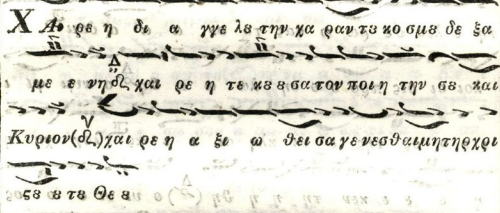 Χαι ρε η δι α γγε λȣ την χα ραν τȣ κο σμȣ δε ξα
με ε νη χαι ρε η τε κȣ ȣ σα τον ποι η την σε και
Κυριον χαι ρε η α ξι ω θει σα γε νεσθαι μη τηρ χρι
ϛȣ ȣ τȣ Θε ȣ